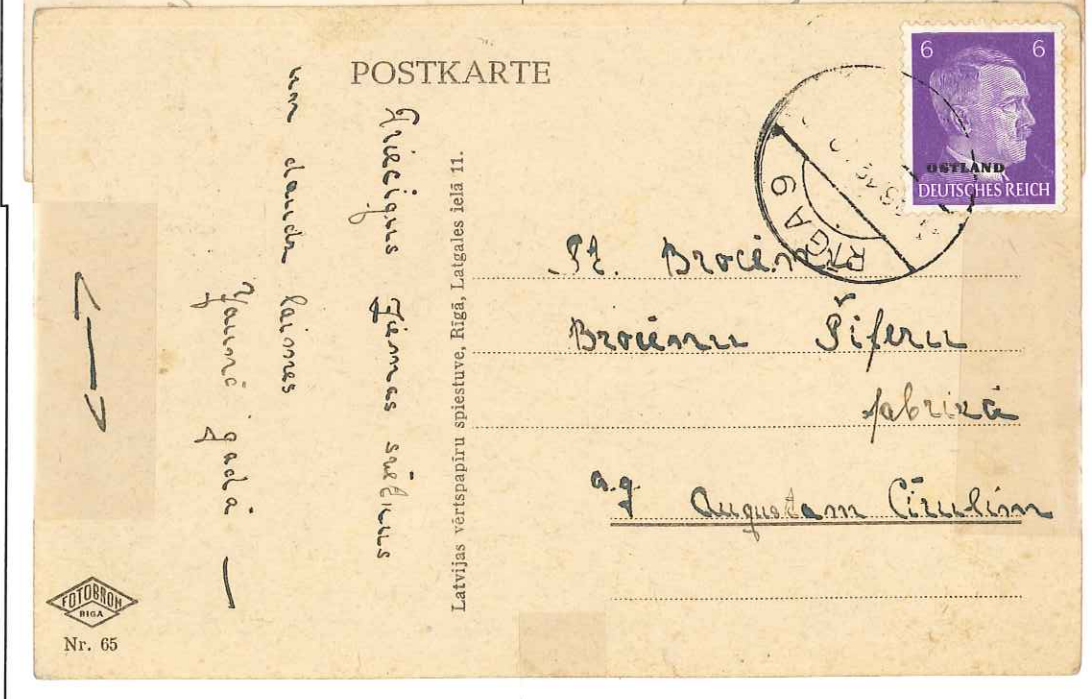 POSTKARTE
6 6
OSTLAND
DEUTSCHES REICH
RĪGA 9
Priecīgus Ziemas svētkus
un daudz laimes
Jaunā gadā —
Latvijas vērtspapīru spiestuve, Rīgā, Latgales ielā 11.
St. Brocēni
Brocēnu Šīferu
fabrikā
Augustam Cīrulim
FOTOBROM
RIGA
Nr. 65